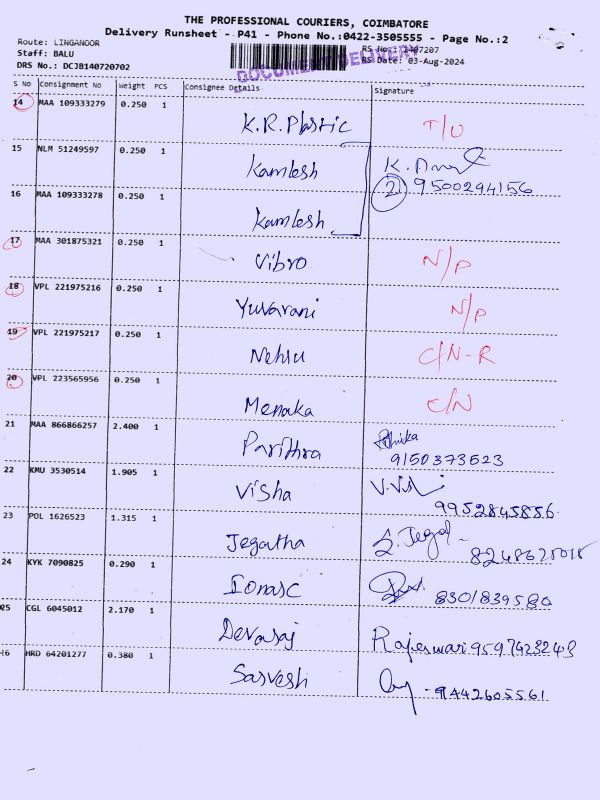 THE PROFESSIONAL COURIERS, COIMBATORE
Delivery Runsheet - P41 - Phone No.:0422-3505555 - Page No.:2
Route: LINGANOOR
RS No.: 1407207
Staff: BALU
RS Date: 03-Aug-2024
DRS No.: DCJB140720702
DOCUMENT DELIVERY
S No Consignment No Weight PCS Consignee Details Signature
14 MAA 109333279 0.250 1 K.R.Plastic T/U
15 NLM 51249597 0.250 1 Kamlesh K.
16 MAA 109333278 0.250 1 Kamlesh 2 9500294156
17 MAA 301875321 0.250 1 Vibro N/P
18 VPL 221975216 0.250 1 Yuvarani N/P
19 VPL 221975217 0.250 1 Nehru C/N-R
20 VPL 223565956 0.250 1 Menaka C/N
21 MAA 866866257 2.400 1 Parithra
9150373523
22 KMU 3530514 1.905 1 Visha
9952845856
23 POL 1626523 1.315 1 Jegatha S. Jegal
24 KYK 7090825 0.290 1 8301839580
25 CGL 6045012 2.170 1 Devaraj Rajeswari 9597423243
MRD 64201277 0.380 1 Sarvesh 9442605561